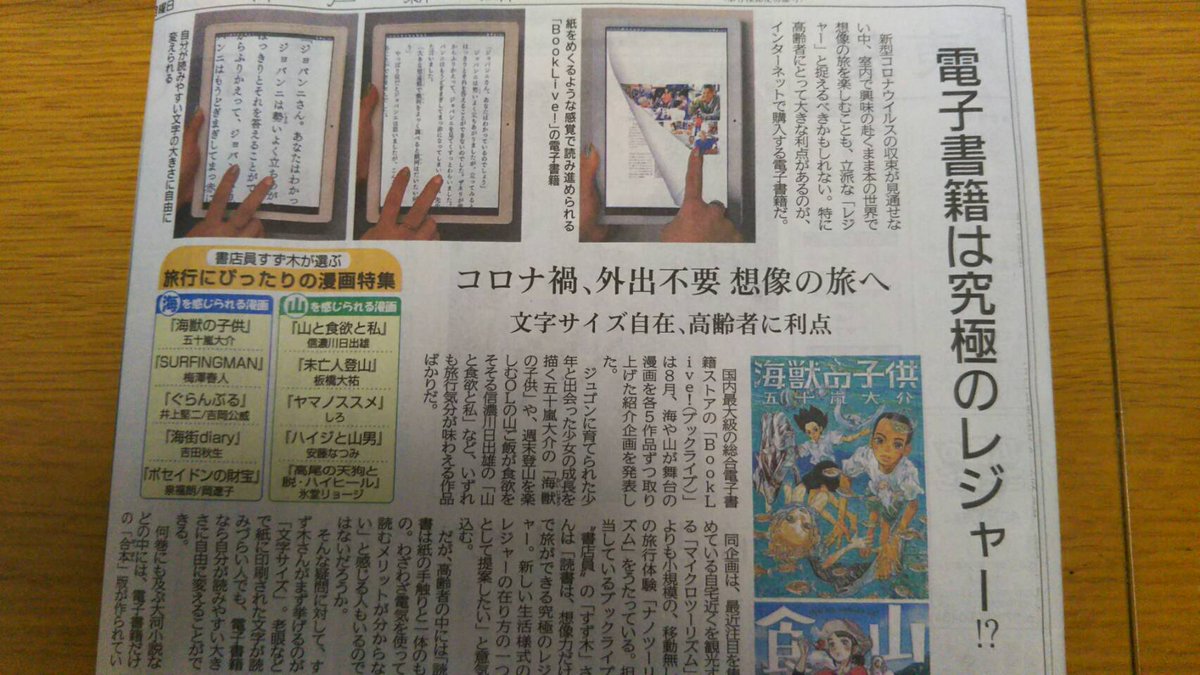 電子書籍は究極のレジャー!?
新型コロナウイルスの収束が見通せな
い中、室内で興味の赴くまま本の世界で
想像の旅を楽しむことも、立派な「レジ
ャー」と捉えるべきかもしれない。特に
高齢者にとって大きな利点があるのが、
インターネットで購入する電子書籍だ。
紙をめくるような感覚で読み進められる
「BookLive!」の電子書籍
自分が読みやすい文字の大きさに自由に
変えられる
ジョバンニさん。あなたはわかっ
コロナ禍、外出不要 想像の旅へ
文字サイズ自在、高齢者に利点
書店員すず木が選ぶ
旅行にぴったりの漫画特集
海を感じられる漫画
『海獣の子供』
五十嵐大介
『SURFINGMAN』
梅澤春人
『ぐらんぶる』
井上堅二/吉岡公威
『海街diary』
吉田秋生
『ポセイドンの財宝』
泉福朗/岡遼子
山を感じられる漫画
『山と食欲と私』
信濃川日出雄
『未亡人登山』
板橋大祐
『ヤマノススメ』
しろ
『ハイジと山男』
安藤なつみ
『高尾の天狗と
脱・ハイヒール』
氷堂リョージ
海獣の子供
五十嵐大介
山
食
国内最大級の総合電子書
籍ストアの「BookL
ive!(ブックライブ)」
は8月、海や山が舞台の
漫画を各5作品ずつ取り
上げた紹介企画を発表し
た。
ジュゴンに育てられた少
年と出会った少女の成長を
描く五十嵐大介の「海獣
の子供」や、週末登山を楽
しむOLの山ご飯が食欲を
そそる信濃川日出雄の「山
と食欲と私」など、いずれ
も旅行気分が味わえる作品
ばかりだ。
同企画は、最近注目を集
めている自宅近くを観光す
る「マイクロツーリズム」
よりも小規模の、移動無し
の旅行体験「ナノツーリ
ズム」をうたっている。担
当しているブックライブ
〝書店員〟の「すず木」さ
んは「読書は、想像力だけ
で旅ができる究極のレジ
ャー。新しい生活様式の
レジャーの在り方の一つ
として提案したい」と意気
込む。
だが、高齢者の中には「読
書は紙の手触りと一体のも
の。わざわざ電気を使って
読むメリットが分からな
い」と感じる人もいるので
はないだろうか。
そんな疑問に対して、す
ず木さんがまず挙げるのが
「文字サイズ」。老眼など
で紙に印刷された文字が読
みづらい人でも、電子書籍
なら自分が読みやすい大き
さに自由に変えることがで
きる。
何巻にも及ぶ大河小説な
どの中には、電子書籍だけ
の「合本」版が作られてい